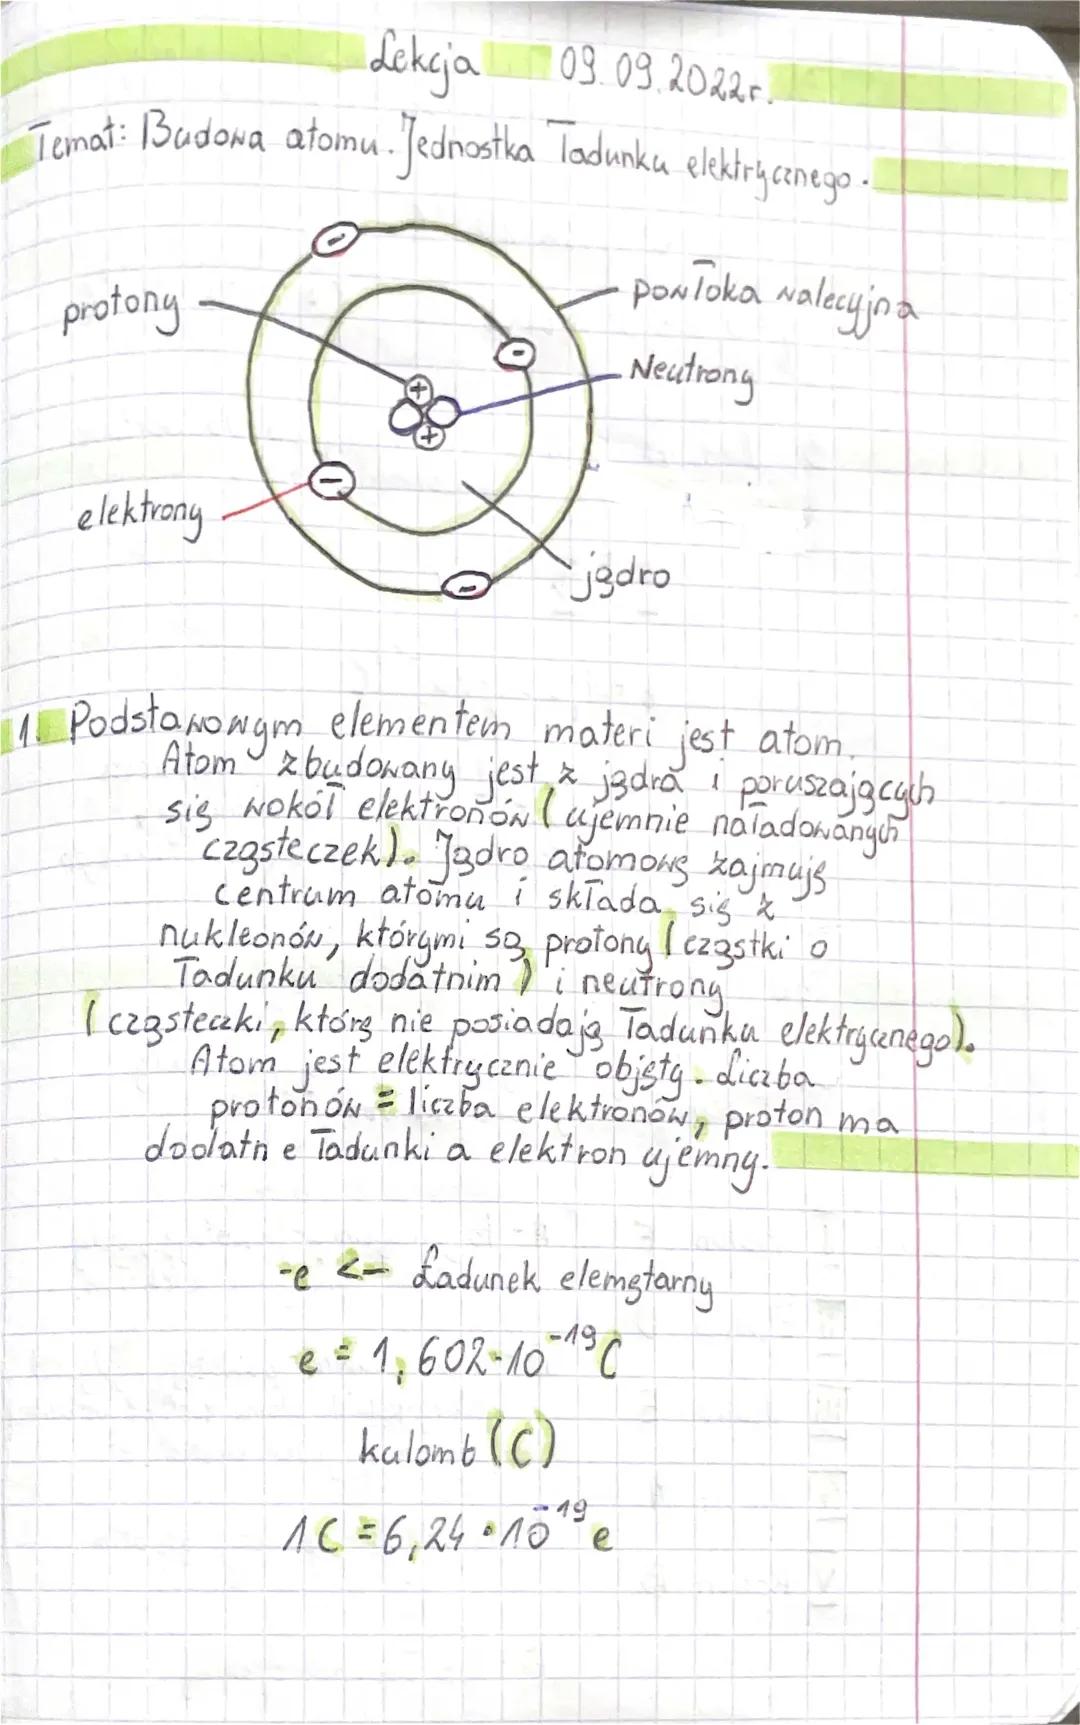 Lekcja 09.09.2022r.
Temat: Budowa atomu. Jednostka ładunku elektrycznego.
protony
powłoka walecyjna
Neutrony
elektrony
jądro
1. Podstawowym elementem materi jest atom.
Atom zbudowany jest z jądra i poruszających
się wokół elektronów (ujemnie naładowanych
cząsteczek). Jądro atomowę zajmuję
centrum atomu i składa się z
nukleonów, którymi są protony (cząstki o
ładunku dodatnim) i neutrony
(cząsteczki, którę nie posiadają ładunku elektrycznego).
Atom jest elektrycznie objęty. Liczba
protonów = liczba elektronów, proton ma
dodatn e ładunki a elektron ujemny.
-e <- Ładunek elemętarny
e = 1,602·10⁻¹⁹C
kulomb (C)
1C = 6,24 · 10⁻¹⁹ e